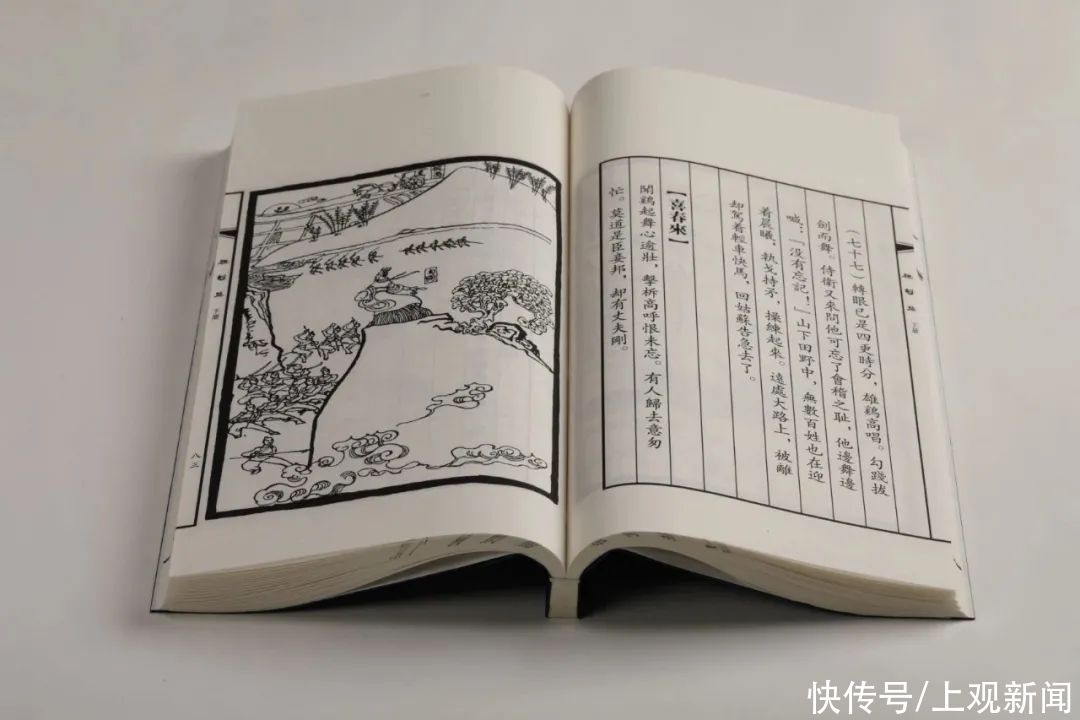 (七十七)轉眼已是四更時分,雄鷄高唱。勾踐拔
劍而舞。侍衛又來問他可忘了會稽之恥,他邊舞邊
喊:『没有忘記!』山下田野中,無數百姓也在迎
着晨曦,執戈持矛,操練起來。遠處大路上,被離
却駕着輕車快馬,回姑蘇告急去了。
【喜春來】
聞鷄起舞心逾壯,擊柝高呼恨未忘。有人歸去意匆
忙。莫道是臣妾邦,却有丈夫剛。
下册
八三
下册
快传号/上观新闻